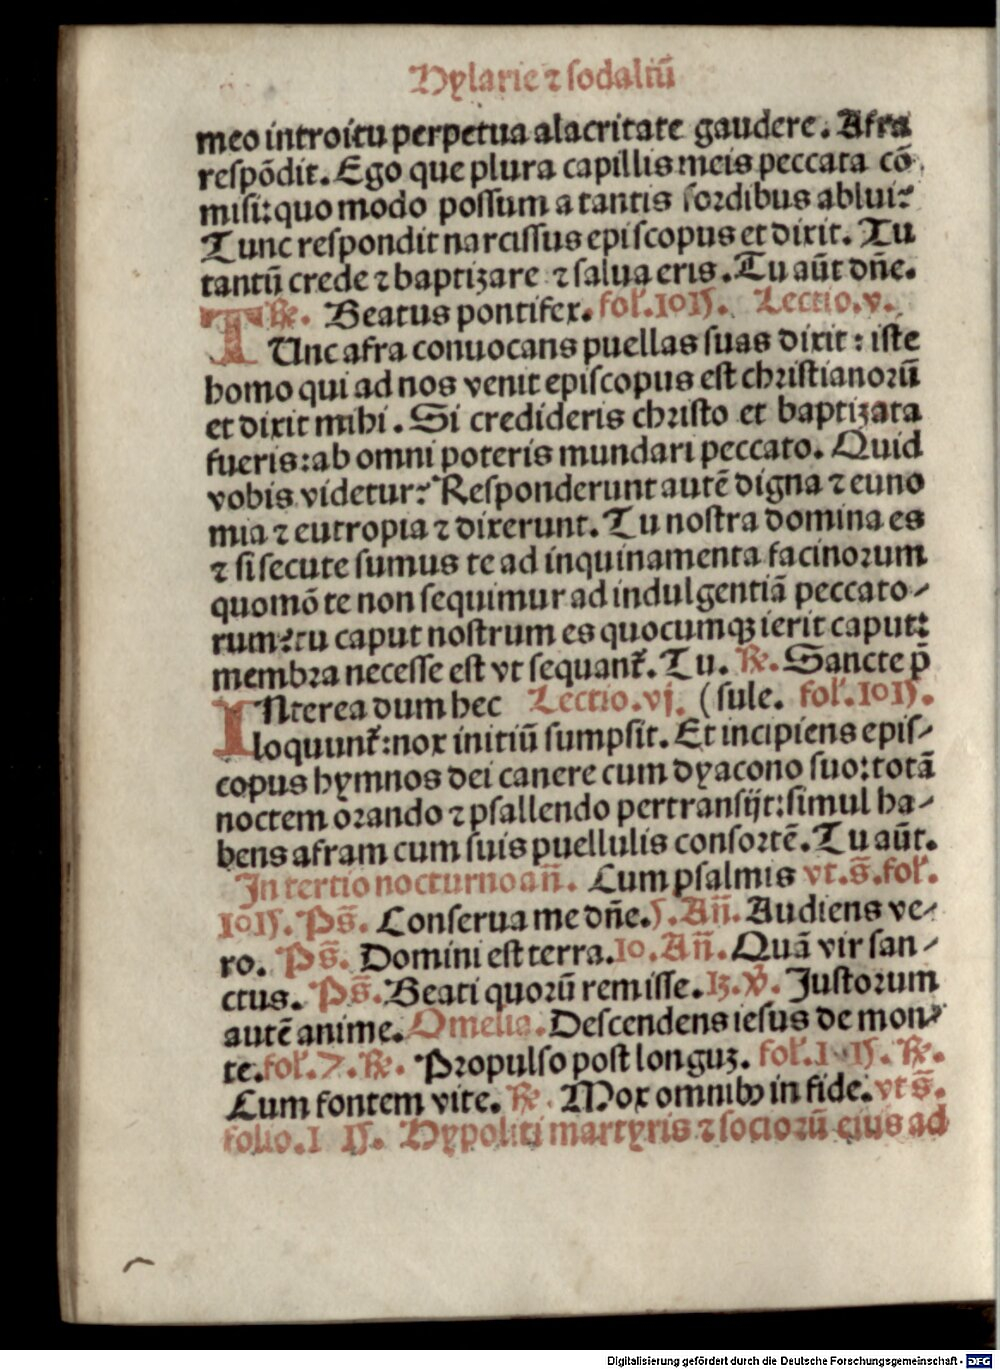 Hylarie ⁊ sodaliū
meo introitu perpetua alacritate gaudere. Afra
respōdit. Ego que plura capillis meis peccata cō
misi: quo modo possum a tantis sordibus ablui?
Tunc respondit narcissus episcopus et dixit. Tu
tantū crede ⁊ baptizare ⁊ salua eris. Tu aūt dn̄e.
℟. Beatus pontifex. fol. Lectio. v.
TUnc afra conuocans puellas suas dixit: iste
homo qui ad nos venit episcopus est christianorū
et dixit mihi. Si credideris christo et baptizata
fueris: ab omni poteris mundari peccato. Quid
vobis videtur? Responderunt autē digna ⁊ euno
mia ⁊ eutropia ⁊ dixerunt. Tu nostra domina es
⁊ si secute sumus te ad inquinamenta facinorum
quomō te non sequimur ad indulgentiā peccato-
rum? tu caput nostrum es quocumqꝫ ierit caput:
membra necesse est vt sequant̄. Tu. ℟. Sancte p̄
INterea dum hec Lectio. vj. (sule. fol.
loquunt̄: nox initiū sumpsit. Et incipiens epis-
copus hymnos dei canere cum dyacono suo: totā
noctem orando ⁊ psallendo pertransijt: simul ha-
bens afram cum suis puellulis consortē. Tu aūt.
In tertio nocturno an̄. Cum psalmis vt. s̄. fol.
Ps̄. Conserua me dn̄e. 5. An̄. Audiens ve-
ro. Ps̄. Domini est terra. 10. An̄. Quā vir san-
ctus. Ps̄. Beati quorū remisse. 13. ℣. Justorum
autē anime. Omelia. Descendens iesus de mon-
te. fol. 7. ℟. Propulso post longuꝫ. fol. ℟.
Cum fontem vite. ℟. Mox omnibꝰ in fide. vt s̄.
folio. Hypoliti martyris ⁊ sociorū eius ad
Digitalisierung gefördert durch die Deutsche Forschungsgemeinschaft - DFG